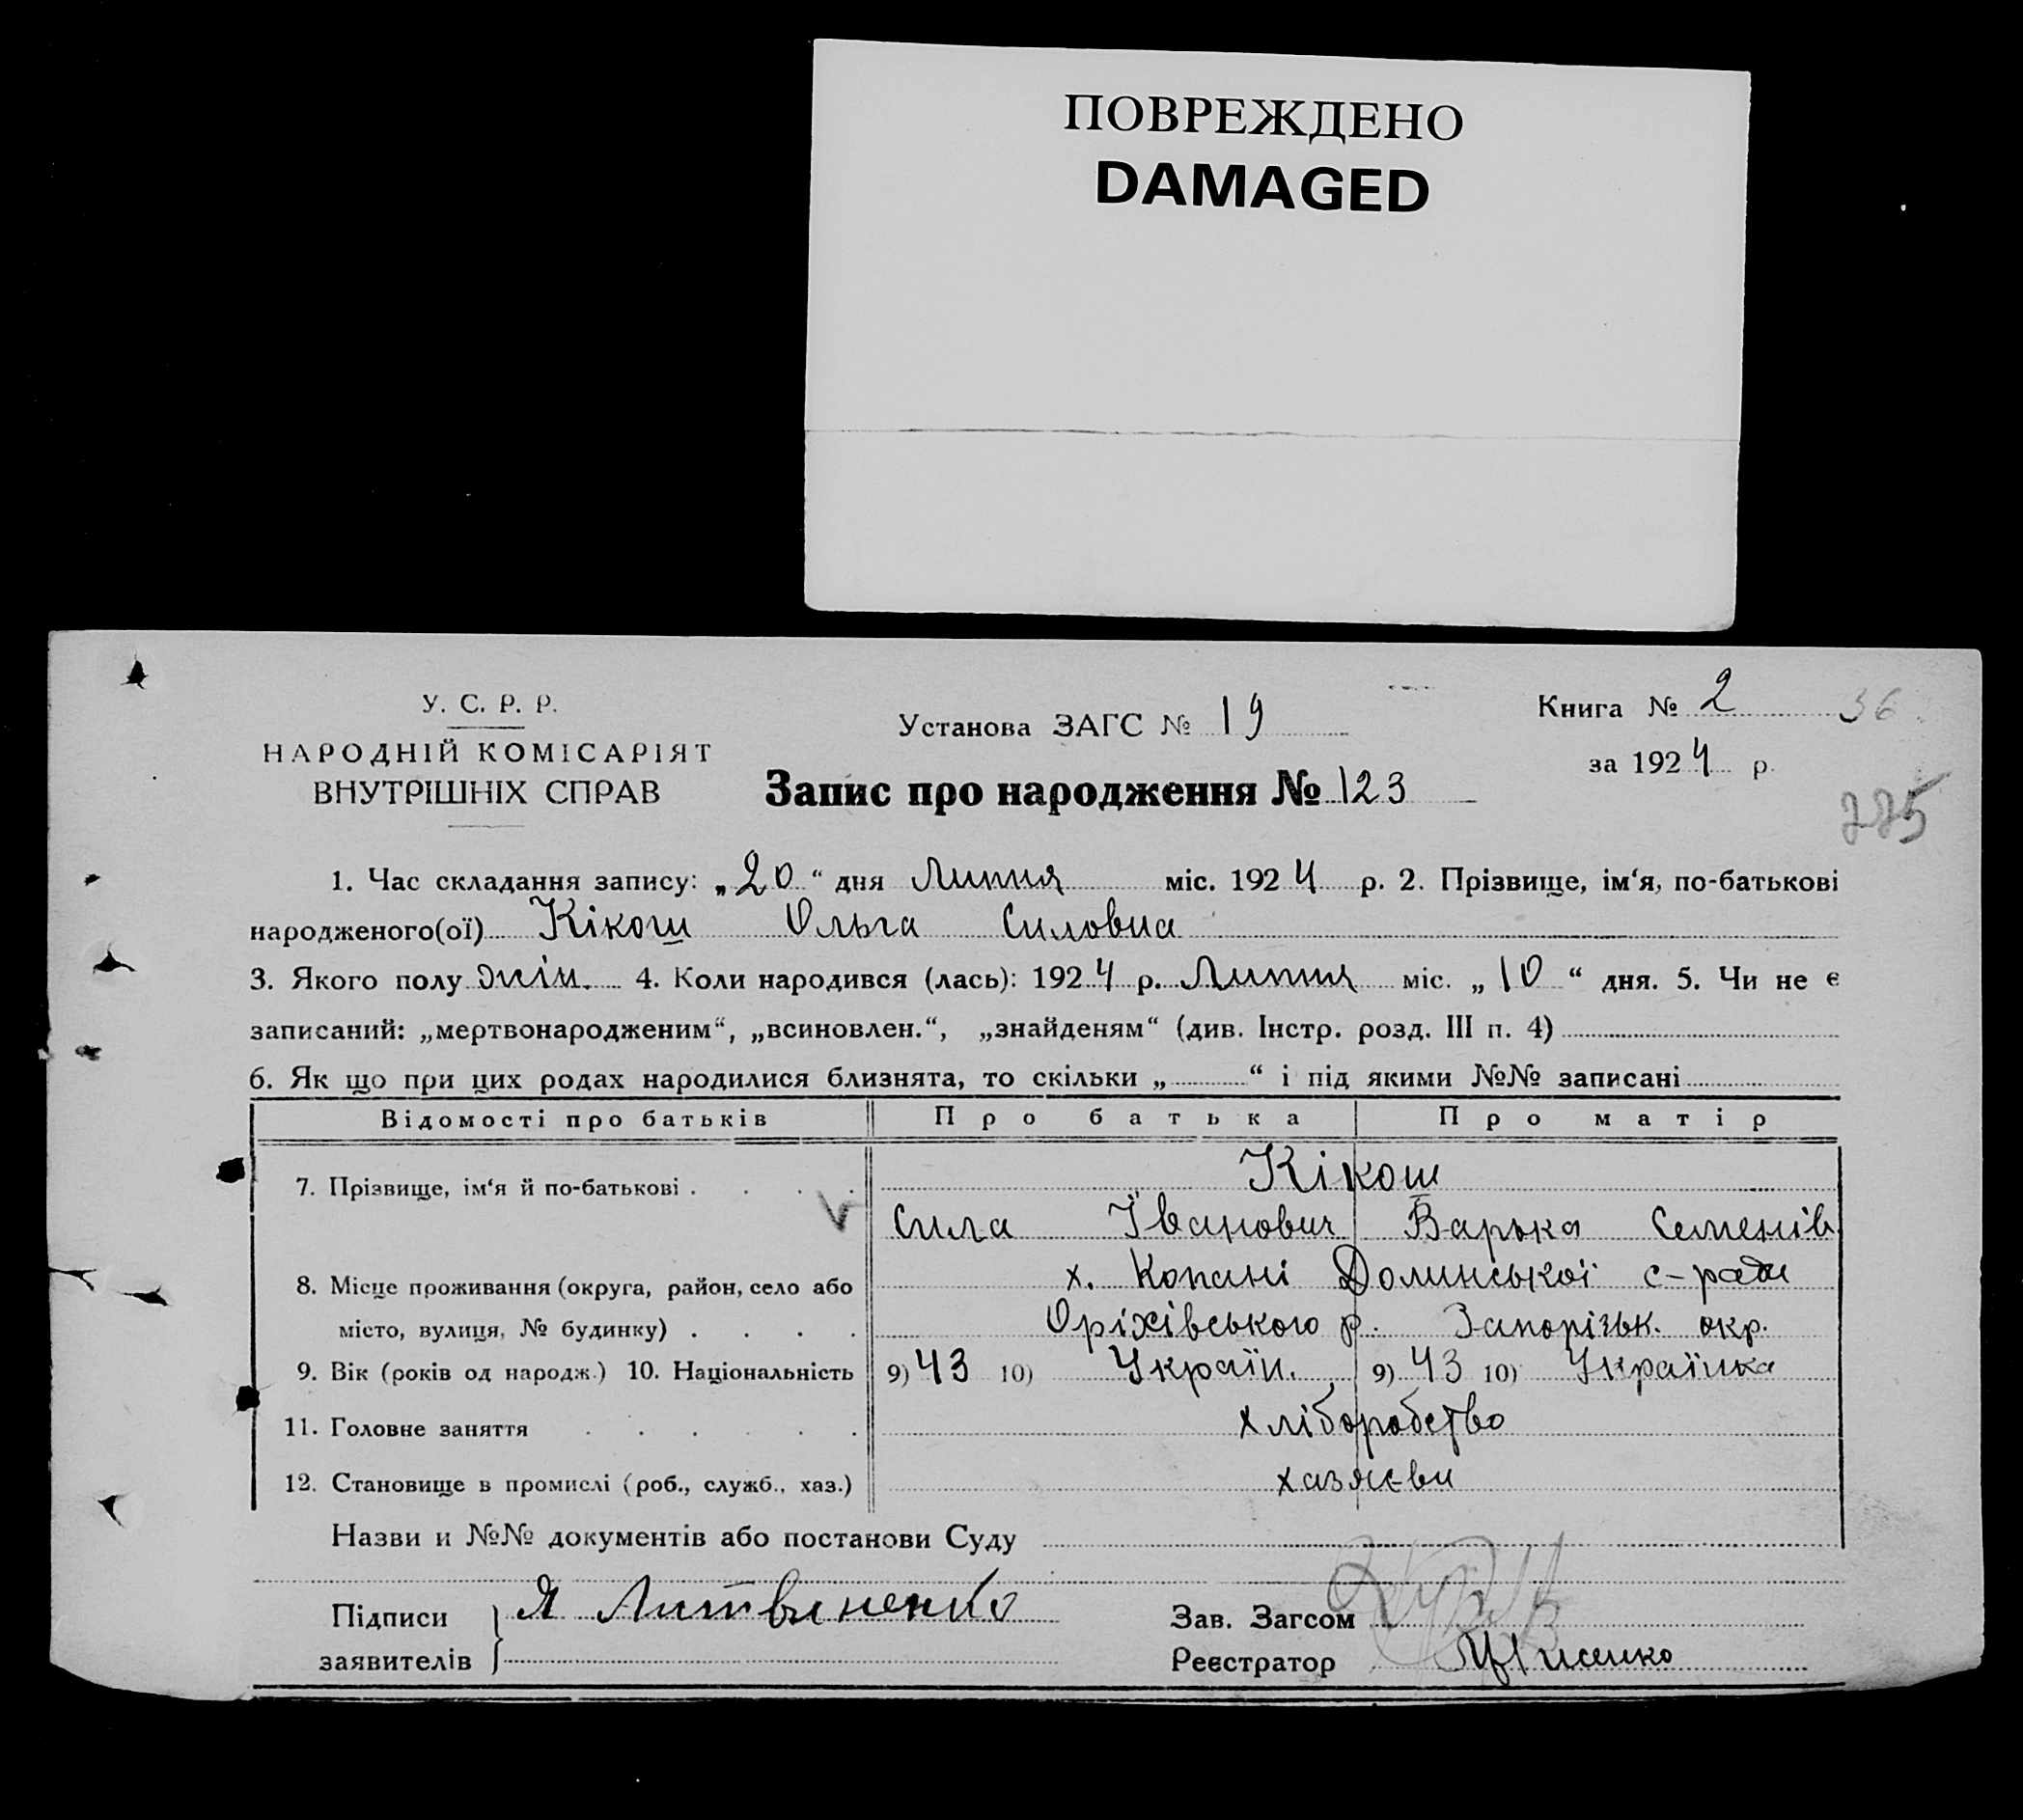 ПОВРЕЖДЕНО
DAMAGED
У. С. Р. Р.
НАРОДНІЙ КОМІСАРІЯТ
ВНУТРІШНІХ СПРАВ
Установа ЗАГС № 19
Запис про народження № 123
Книга № 2 36
за 1924 р.
225
1. Час складання запису: „20“ дня Липня міс. 1924 р. 2. Прізвище, ім‘я, по-батькові
народженого(ої) Кікош Ольга Силовна
3. Якого полу жін. 4. Коли народився (лась): 1924 р. Липня міс. „10“ дня. 5. Чи не є
записаний: „мертвонародженим“, „всиновлен.“, „знайденям“ (див. Інстр. розд. III п. 4)
6. Як що при цих родах народилися близнята, то скільки „ “ і під якими №№ записані
Відомості про батьків Про батька Про матір
7. Прізвище, ім‘я й по-батькові . . . . Кікош
Сила Іванович Варька Семенів
8. Місце проживання (округа, район, село або х. Копані Долинської с-ради
місто, вулиця, № будинку) . . . . Оріхівського р. Запорізьк. окр.
9. Вік (років од народж.) 10. Національність 9) 43 10) Україн. 9) 43 10) Українка
11. Головне заняття . . . . . . хліборобство
12. Становище в промислі (роб., служб., хаз.) хазяєви
Назви и №№ документів або постанови Суду
Підписи Я Литвиненко Зав. Загсом
заявителів Реєстратор